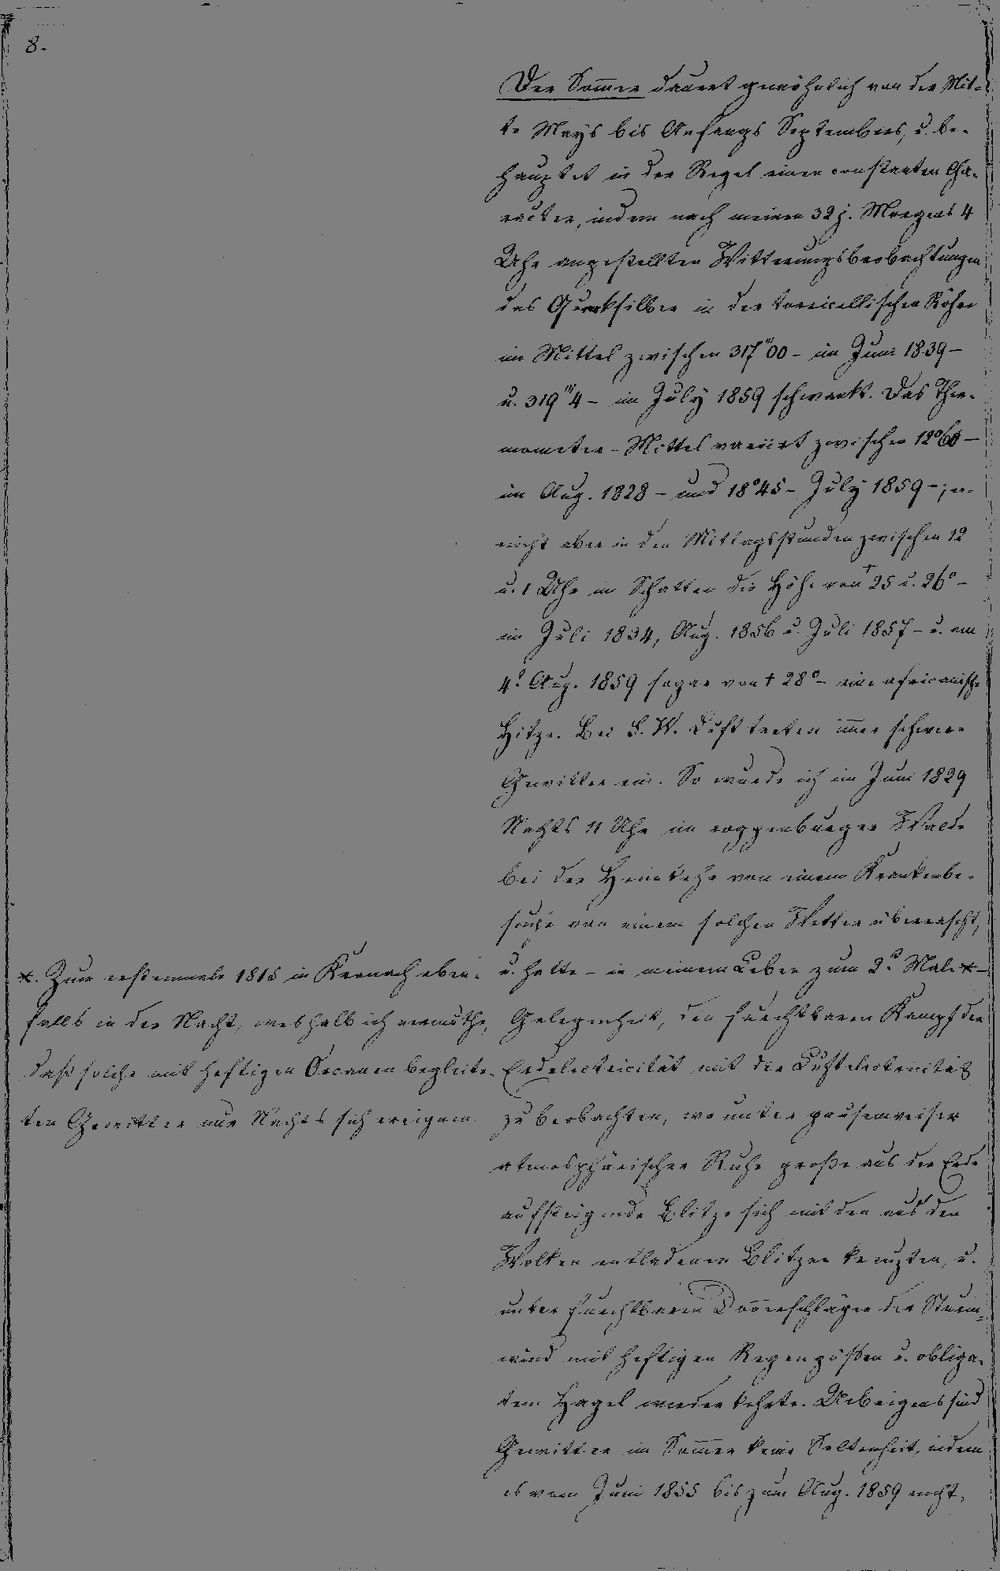 8.
Der Som̅er dauert gewöhnlich von der Mit-
te Mays bis Anfangs Septembers, u. be-
hauptet in der Regel einen constanten Cha-
racter, indem nach meinen 32 j. Morgens 4
Uhr angestellten Witterungsbeobachtungen
das Quecksilber in der toricellischen Röhre
im Mittel zwischen 317‴00 - im Juni 1839 -
u. 319‴4 - im July 1859 schwankt. Das Ther-
mometer-Mittel variirt zwischen 12°60 -
im Aug. 1828 - und 18°45 - July 1859 -; er-
reicht aber in den Mittagsstunden zwischen 12
u. 1 Uhr im Schatten die Höhe von +25 u. 26° -
im Juli 1834, Aug. 1856 u. Juli 1857 - u. am
4t Aug. 1859 sogar von + 28° - eine africanische
Hitze. Bei S. W. Luft treten im̅er schwere
Gewitter ein. So wurde ich im Juni 1829
Nachts 11 Uhr im roggenburger Walde
bei der Heimkehr von einem Krankenbe-
suche von einem solchen Wetter überrascht,
u. hatte - in meinem Leben zum 2t Male *-
Gelegenheit, den furchtbaren Kampf der
Erdelectricität mit der Luftelectricität
zu beobachten, wo unter pausenweiser
atmosphärischer Ruhe große aus der Erde
aufsteigende Blitze sich mit den aus den
Wolken entladenen Blitzen kreuzten, u.
unter furchtbaren Don̅erschlägen der Sturm-
wind mit heftigen Regengüßen u. obliga-
tem Hagel wiederkehrte. Uebrigens sind
Gewitter im Som̅er keine Seltenheit, indem
es vom Juni 1855 bis zum Aug. 1859 nicht
*. Zum erstenmale 1815 in Kronach eben-
falls in der Nacht, weshalb ich vermuthe,
daß solche mit heftigen Orcanen begleite-
ten Gewitter nur Nachts sich ereignen.